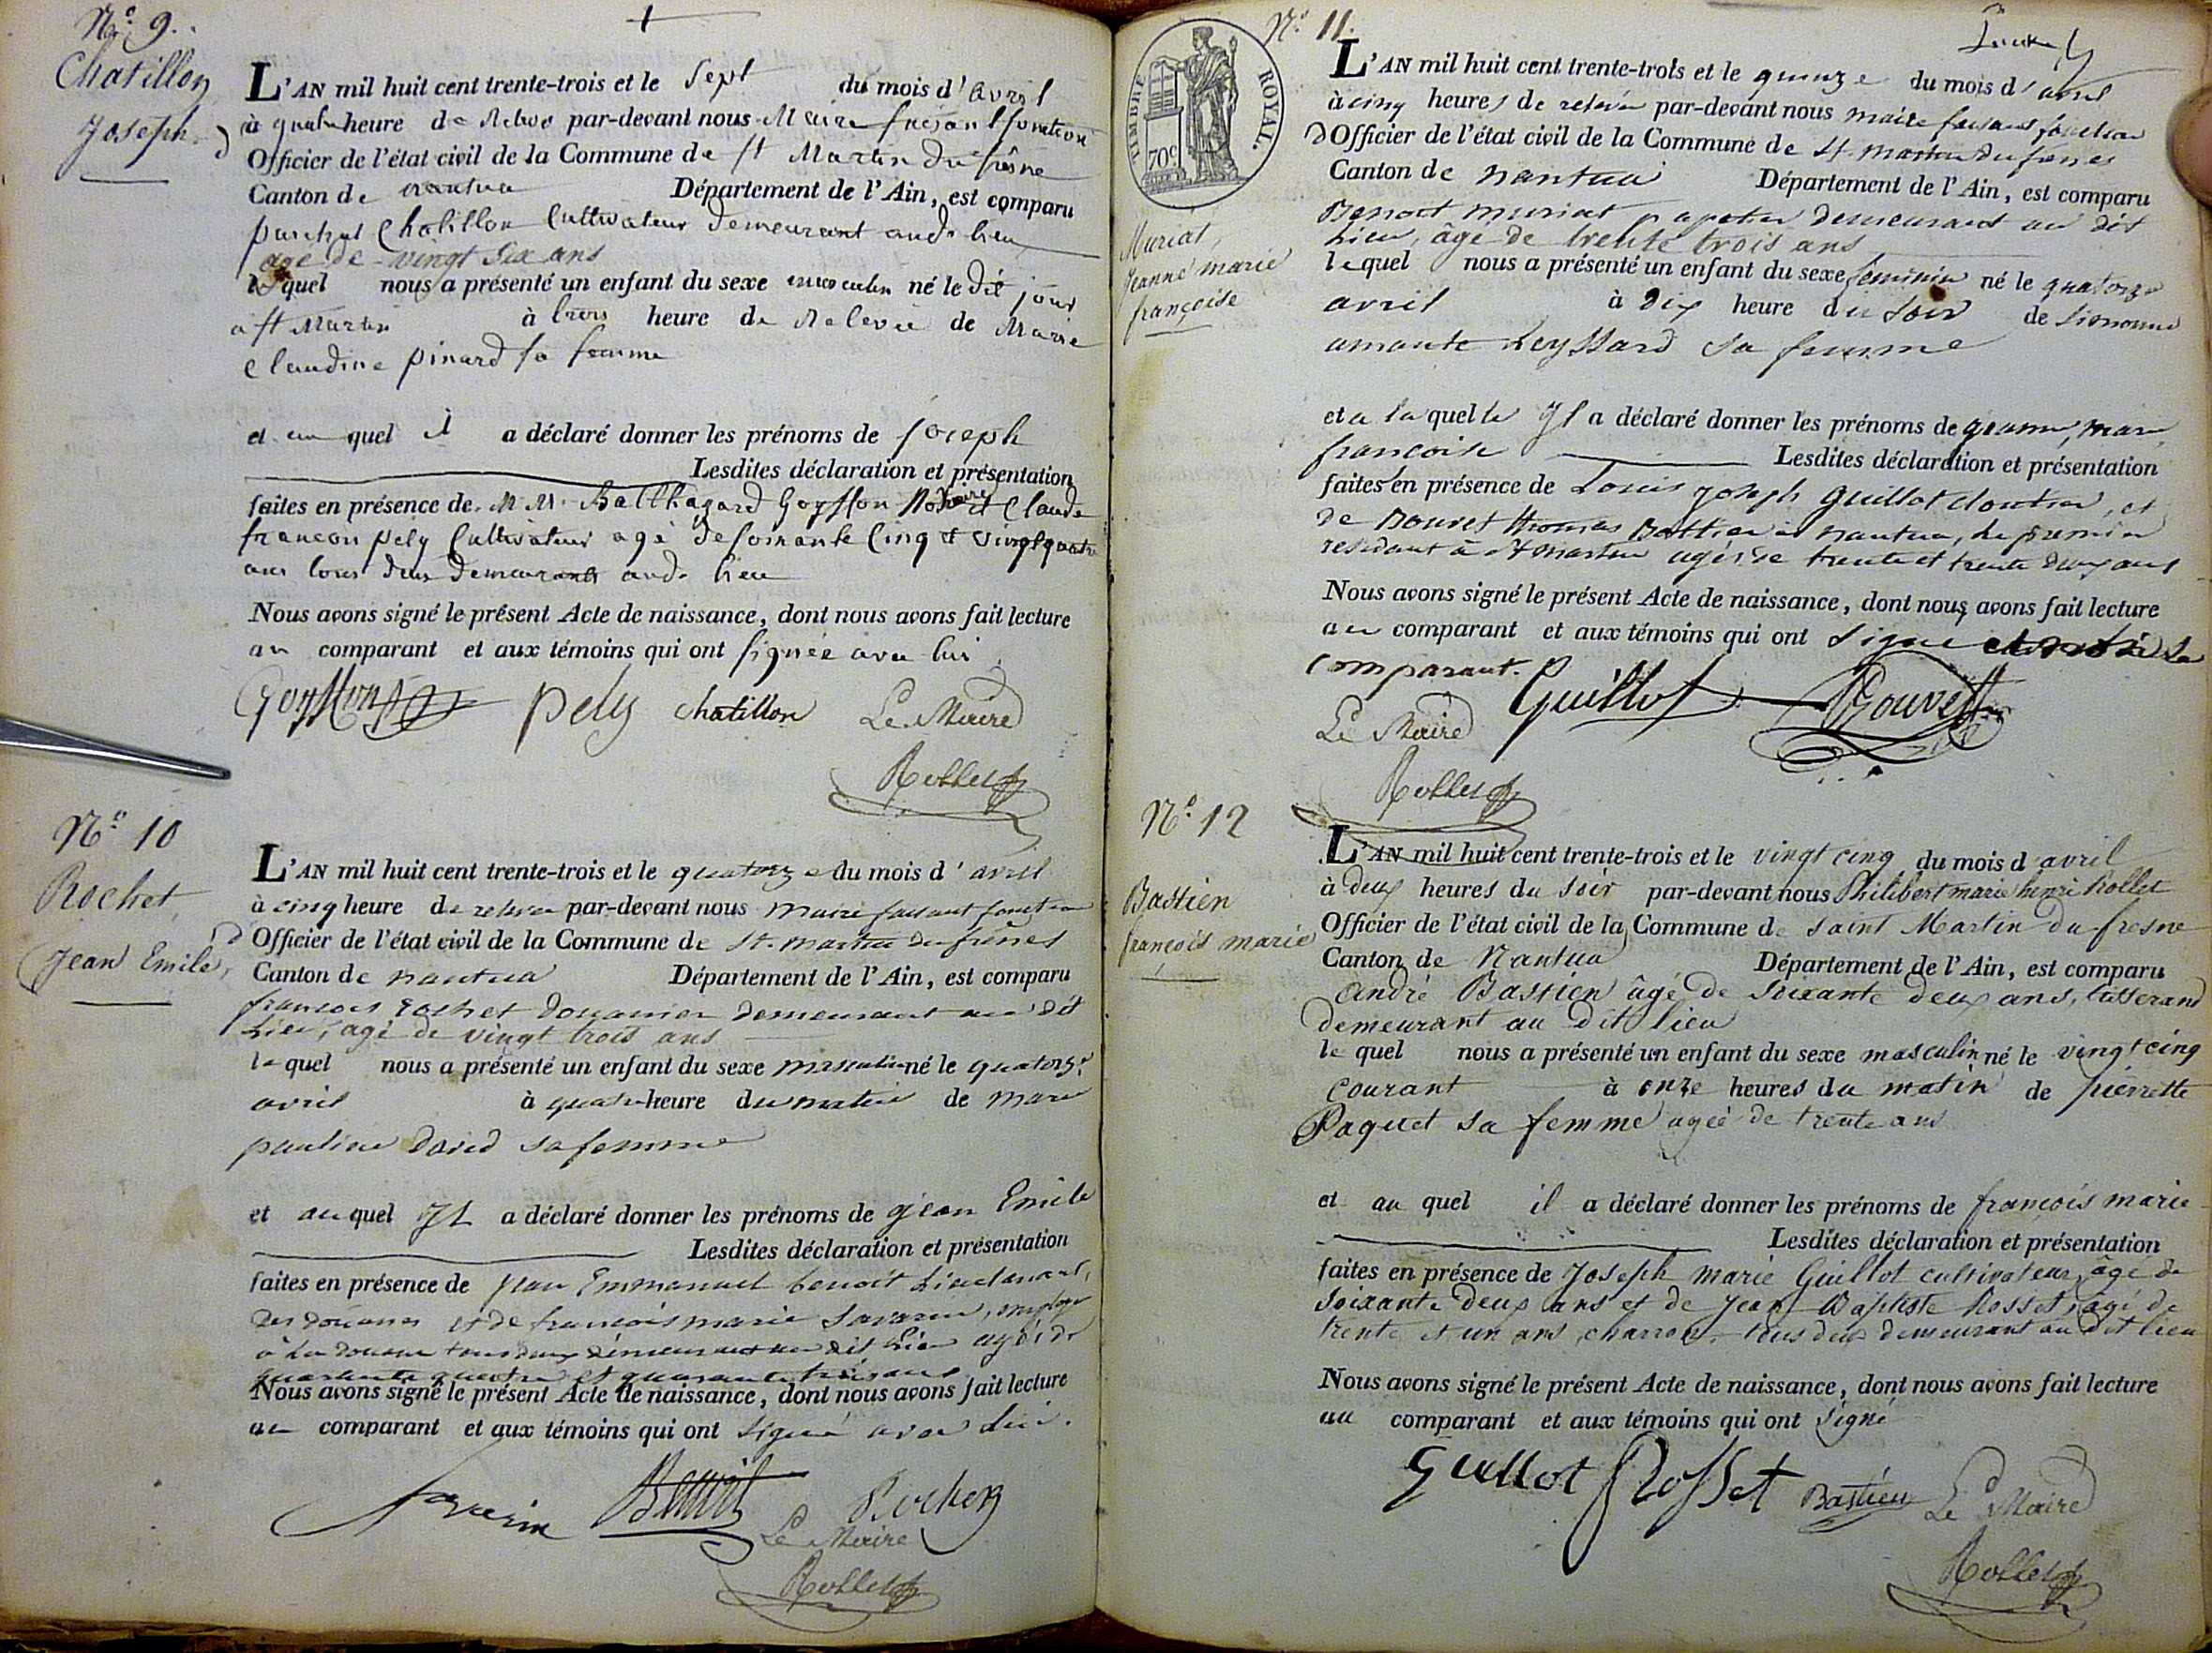 N.º 9.
Chatillon
Joseph.
L'AN mil huit cent trente-trois et le Sept du mois d'avril
à quatre heure de Relevé par-devant nous Maire faisant fonction
d'Officier de l'état civil de la Commune de St Martin du frêne
Canton de nantua Département de l'Ain, est comparu
paschal Chatillon Cultivateur demeurant aud. lieu
agé de vingt six ans
lequel nous a présenté un enfant du sexe masculin né le dit jour
a St Martin à trois heure de Relevée de Marie
Claudine pinard sa femme
et au quel il a déclaré donner les prénoms de Joseph
Lesdites déclaration et présentation
faites en présence de M M. Balthazard Goyffon Notaire et Claude
francou pely Cultivateur agé de soixante Cinq et vingt quatre
ans tous deux demeurants aud. lieu
Nous avons signé le présent Acte de naissance, dont nous avons fait lecture
au comparant et aux témoins qui ont signée avec lui
Goyffon pely chatillon Le Maire
Rollet
N.º 10
Rochet
Jean Emile,
L'AN mil huit cent trente-trois et le quatorze du mois d'avril
à cinq heure de relevée par-devant nous maire faisant fonction
d'Officier de l'état civil de la Commune de St. martin du frênes
Canton de nantua Département de l'Ain, est comparu
francois rochet douanier demeurant au dit
Lieu, agé de vingt trois ans
lequel nous a présenté un enfant du sexe masculin né le quatorze
avril à quatre heure du matin de marie
pauline david sa femme
et au quel Il a déclaré donner les prénoms de jean Emile
Lesdites déclaration et présentation
faites en présence de jean Emmanuel benoit Lieutenant,
des douanes et de francois marie Savarin, employé
à la douane tous deux demeurant au dit Lieu agés de
quarante quatre et quarante trois ans
Nous avons signé le présent Acte de naissance, dont nous avons fait lecture
au comparant et aux témoins qui ont signé avec lui.
Savarin Benoit Rochet
Le Maire
Rollet
N.º 11.
TIMBRE ROYAL.
70c
Muriat,
Jeanne marie
françoise
L'AN mil huit cent trente-trois et le quinze du mois d'avril
à cinq heures de relevée par-devant nous maire faisant fonction
d'Officier de l'état civil de la Commune de St. martin du frênes
Canton de nantua Département de l'Ain, est comparu
Benoit muriat papetier demeurant au dit
Lieu, âgé de trente trois ans
lequel nous a présenté un enfant du sexe feminin né le quatorze
avril à dix heure du soir de
amante Leyssard sa femme
et a laquelle Il a déclaré donner les prénoms de jeanne, marie
francoise Lesdites déclaration et présentation
faites en présence de Louis joseph guillot cloutier, et
de Bouvet thomas Bottier à nantua, le premier
residant à St martin agés de trente et trente deux ans
Nous avons signé le présent Acte de naissance, dont nous avons fait lecture
au comparant et aux témoins qui ont signé le
comparant.
Guillot Bouvet
Le Maire
Rollet
N.º 12
Bastien
françois marie
L'AN mil huit cent trente-trois et le vingt cinq du mois d'avril
à deux heures du soir par-devant nous Philibert marie henri Rollet
Officier de l'état civil de la Commune de saint Martin du fresne
Canton de Nantua Département de l'Ain, est comparu
andré Bastien âgé de soixante deux ans, tisserand
demeurant au dit lieu
le quel nous a présenté un enfant du sexe masculin né le vingt cinq
courant à onze heures du matin de pierrette
Paquet sa femme agée de trente ans
et au quel il a déclaré donner les prénoms de françois marie
Lesdites déclaration et présentation
faites en présence de Joseph marie Guillot cultivateur, âgé de
soixante deux ans et de Jean Baptiste Rosset, âgé de
trente et un ans charron, tous deux demeurant au dit lieu
Nous avons signé le présent Acte de naissance, dont nous avons fait lecture
au comparant et aux témoins qui ont signé
Guillot Rosset Bastien Le Maire
Rollet